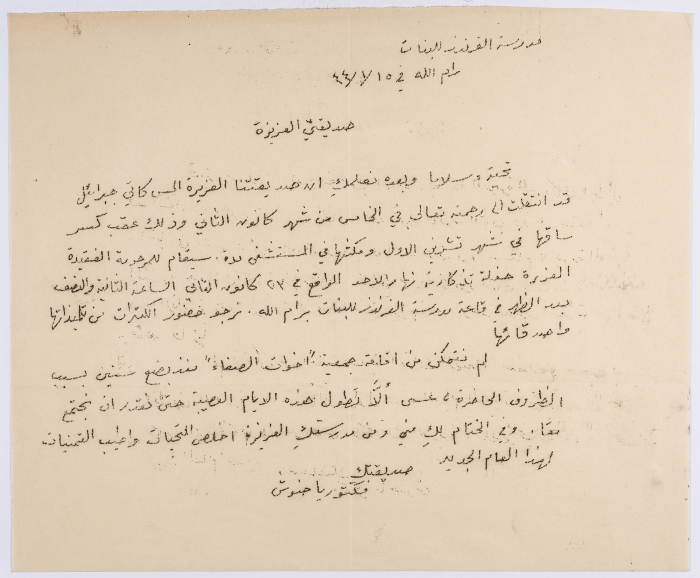 مدرسة الفرندز للبنات
رام الله في ١٥/١/٤٤
صديقتي العزيزة
تحية وسلاما وبعده نعلمك ان صديقتنا العزيزة المس كاتي جبرائيل
قد انتقلت الى رحمته تعالى في الخامس من شهر كانون الثاني وذلك عقب كسر
ساقها في شهر تشرين الاول ومكثها في المستشفى مدة. سيقام للمرحومة الفقيدة
العزيزة حفلة تذكارية نهار الاحد الواقع في ٢٣ كانون الثاني الساعة الثانية والنصف
بعد الظهر في قاعة مدرسة الفرندز للبنات برام الله. نرجو حضور الكثيرات من تلميذاتها
واصدقائها
لم نتمكن من اقامة جمعية "اخوات الصفاء" منذ بضع سنين بسبب
الظروف الحاضرة، عسى ألّا تطول هذه الايام العصيبة حتى نقدر ان نجتمع
معا. وفي الختام لكِ مني ومن مدرستكِ العزيزة اخلص التحيات واطيب التمنيات
لهذا العام الجديد
صديقتك
فكتوريا حنوش